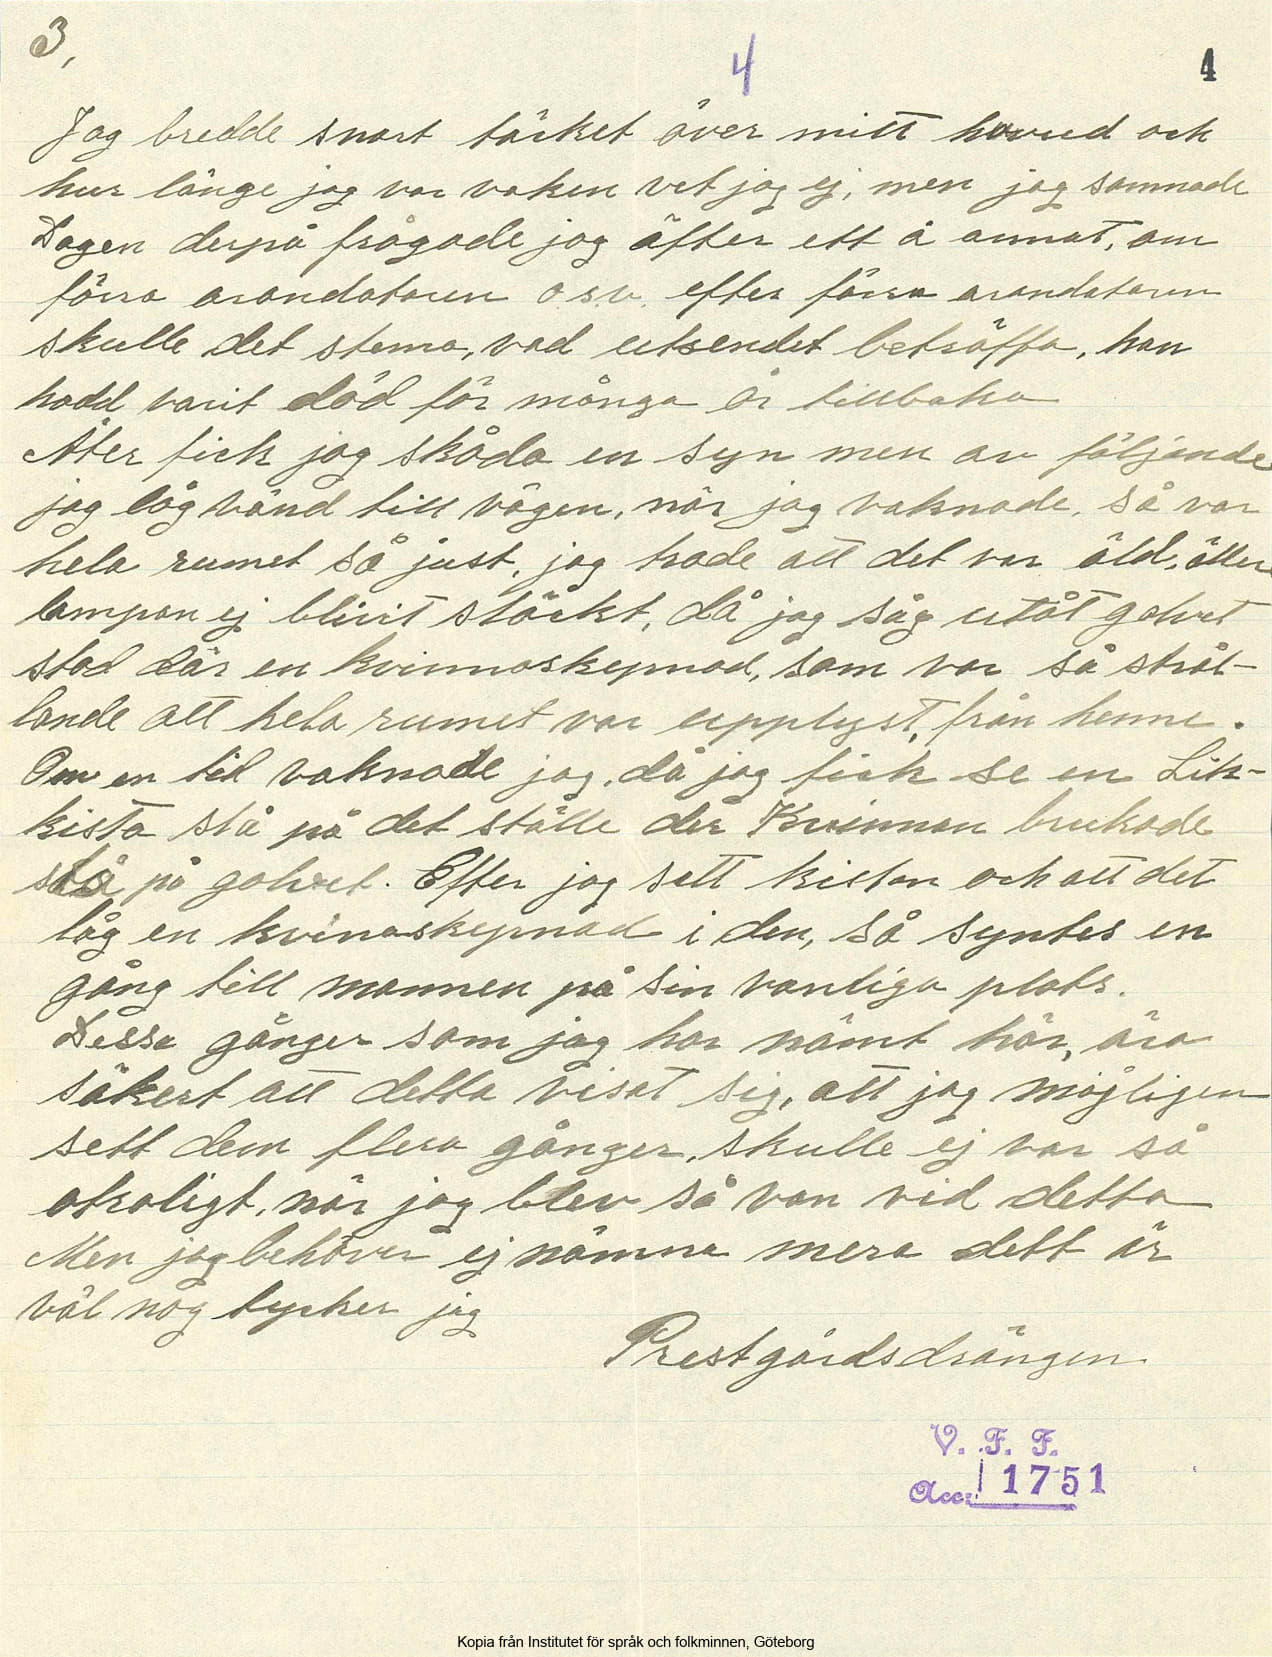 3,
4
4
Jag bredde snart täcket över mitt huvud och
hur länge jag var vaken vet jag ej, men jag somnade
Dagen derpå frågade jag äfter ett å annat, om
förra arandataren o.s.v. efter förra arandataren
skulle det stema, vad utsendet beträffa, han
hadd varit död för många år tillbaka
Åter fick jag skåda en syn men av följande
jag låg vänd till vägen, när jag vaknade, så var
hela rumet så just, jag trode att det var äld, äller
lampan ej blivit släckt, då jag såg utåt golvet
stod där en kvinnoskepnad, som var så strål-
lande att hela rumet var upplyst, från henne.
Om en tid vaknade jag, då jag fick se en Lik-
kista stå på det ställe der Kvinnan brukade
stå på golvet. Efter jag sett kistan och att det
låg en kvinaskepnad i den, så syntes en
gång till mannen på sin vanliga plats.
Dessa gånger som jag har nämt här, ära
säkert att detta visat sig, att jag möjligen
sett dem flera gånger, skulle ej var så
otroligt, när jag blev så van vid detta
Men jag behöver ej nämna mera dett är
väl nog tycker jag
Prestgårdsdrängen
V. F. F.
Acc: 1751
Kopia från Institutet för språk och folkminnen, Göteborg